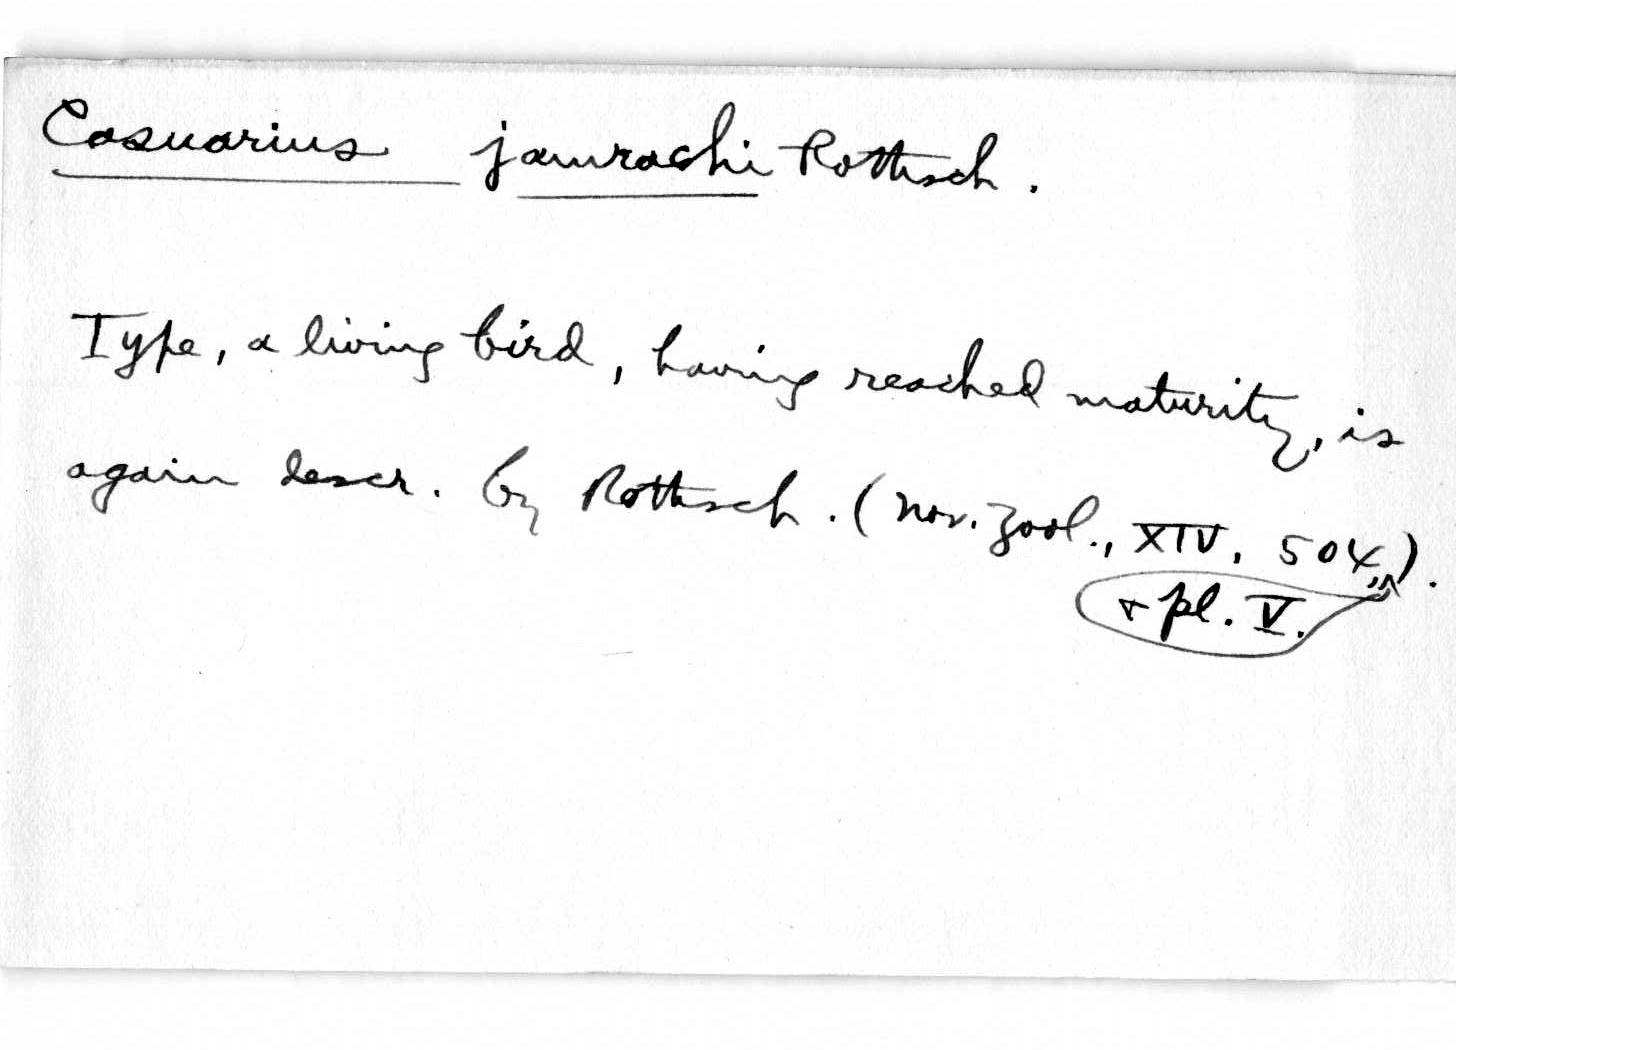 Casuarius jamrachi Rothsch.
Type, a living bird, having reached maturity, is
again descr. by Rothsch. (Nov. Zool., XIV, 504,).
+ pl. V.